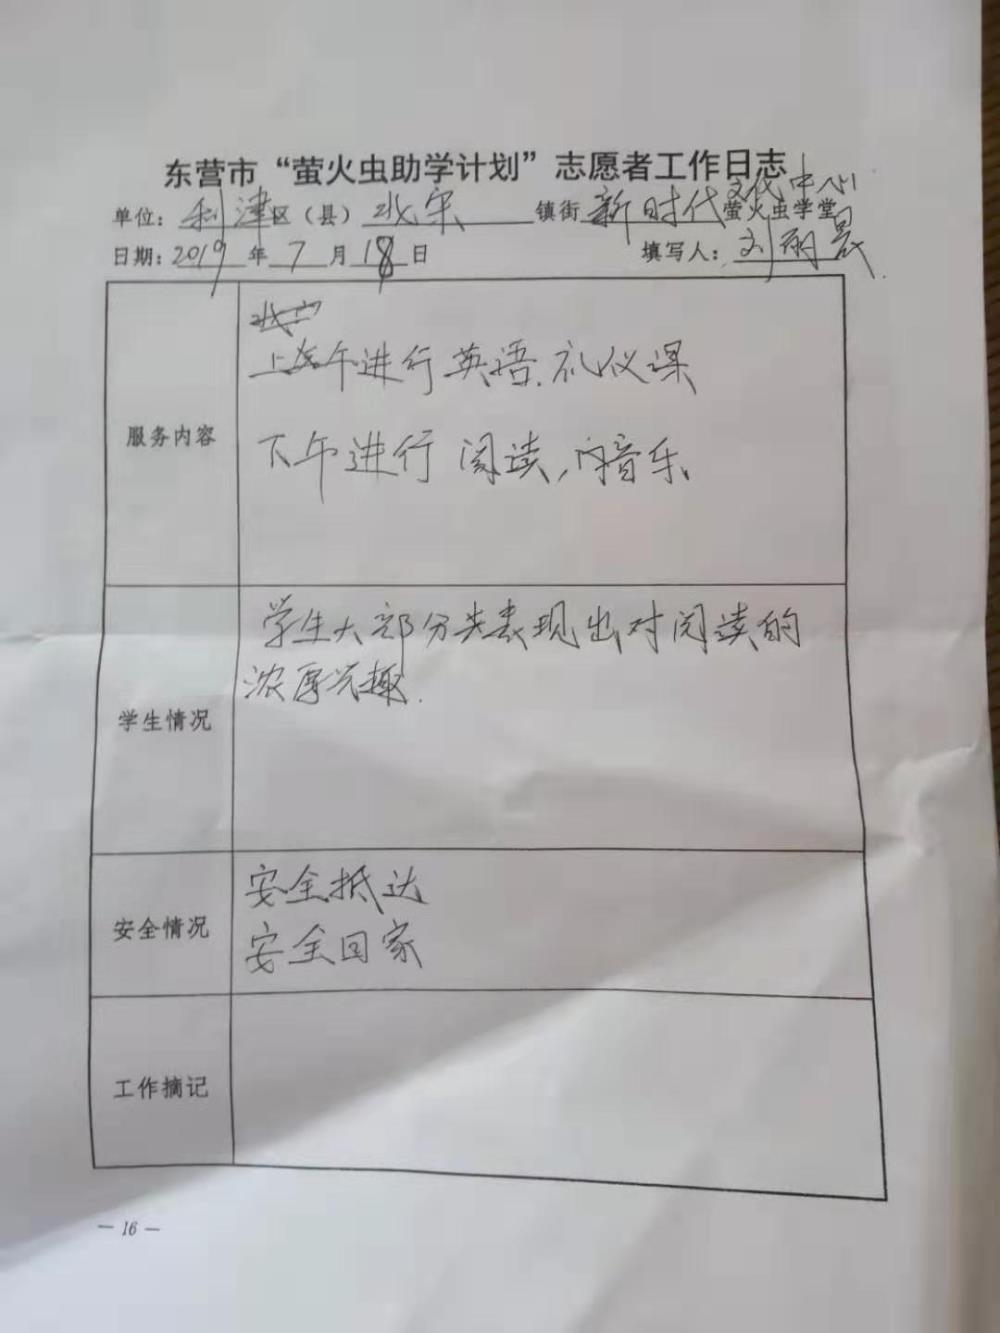 东营市“萤火虫助学计划”志愿者工作日志
单位：利津区（县）北宋镇街新时代文化中心萤火虫学堂
日期：2019年7月18日 填写人：刘丽晨
服务内容
上午进行英语、礼仪课
下午进行阅读，音乐、
学生情况
学生大部分类表现出对阅读的
浓厚兴趣.
安全情况
安全抵达
安全回家
工作摘记
— 16 —